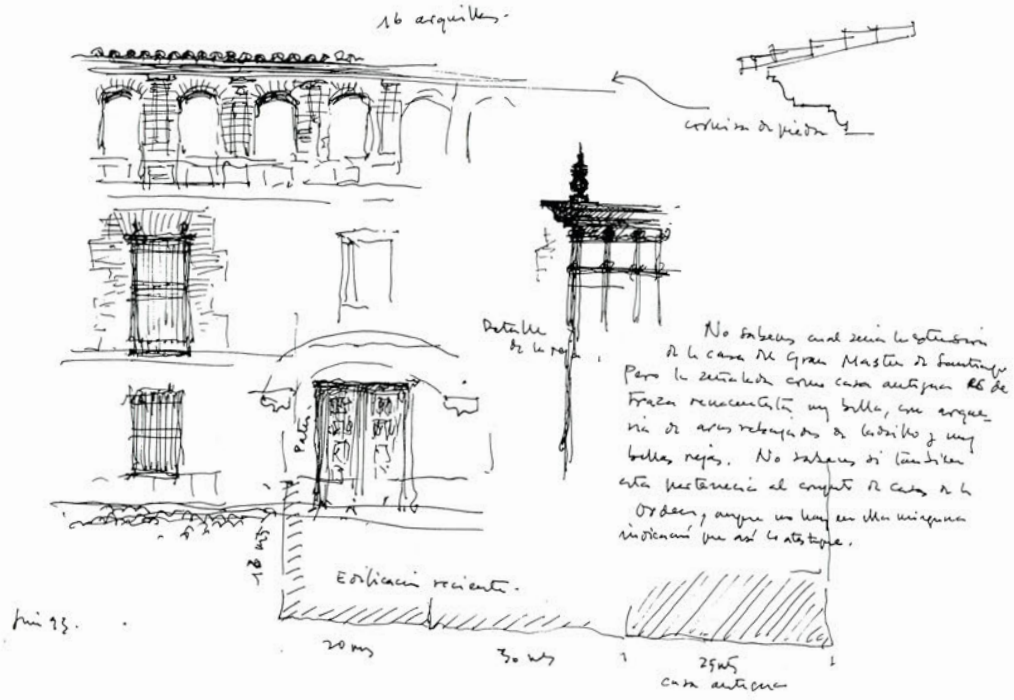 16 arquillos.
cornisa de piedra
Detalle
de la reja.
No sabemos cual seria la extension
de la casa del Gran Master de Santiago
Pero la señalada como casa antigua es de
traza renacentista muy bella, con arque-
ria de arcos rebajados de ladrillo y muy
bellas rejas. No sabemos si tambien
esta pertenecia al conjunto de casas de la
Orden, aunque no hay en ella ninguna
indicación que asi lo atestigue.
Patio
18 mts
Edificacion reciente.
20 mts
30 mts
25 mts
casa antigua
93.